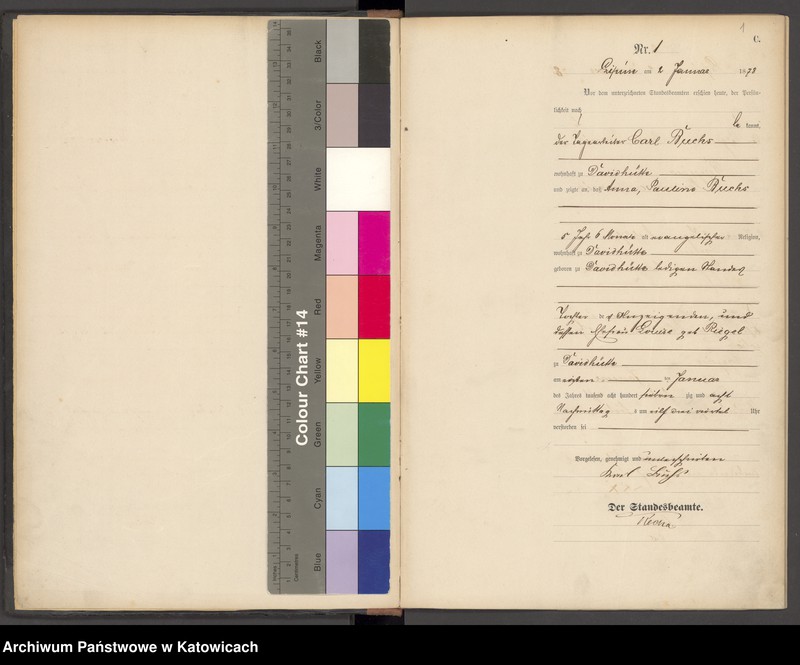 Colour Chart #14
Black
3/Color
White
Magenta
Red
Yellow
Green
Cyan
Blue
Inches
Centimetres
1
C.
Nr. 1
Lipine am 2 Januar 1878
Vor dem unterzeichneten Standesbeamten erschien heute, der Persön-
lichkeit nach
be kannt,
der Tagearbeiter Carl Buchs
wohnhaft zu Davidhütte
und zeigte an, daß Anna, Pauline Buchs
5 Jahr 6 Monate alt evangelischer Religion,
wohnhaft zu Davidhütte
geboren zu Davidhütte ledigen Standes
Tochter des Anzeigenden, und
dessen Ehefrau Louise geb Riegel
zu Davidhütte
am ersten Januar
des Jahres tausend acht hundert sieben zig und acht
Nachmittag s um elf drei viertel Uhr
verstorben sei
Vorgelesen, genehmigt und unterschrieben
Karl
Der Standesbeamte.
Archiwum Państwowe w Katowicach